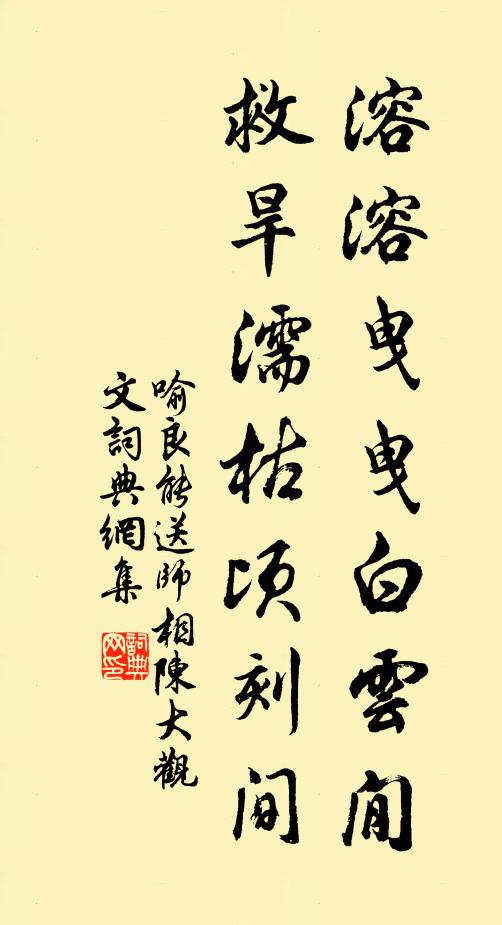 溶溶曳曳白雲閒
救旱濡枯頃刻間
喻良能送師相陳大觀
文詞典網集
詞典